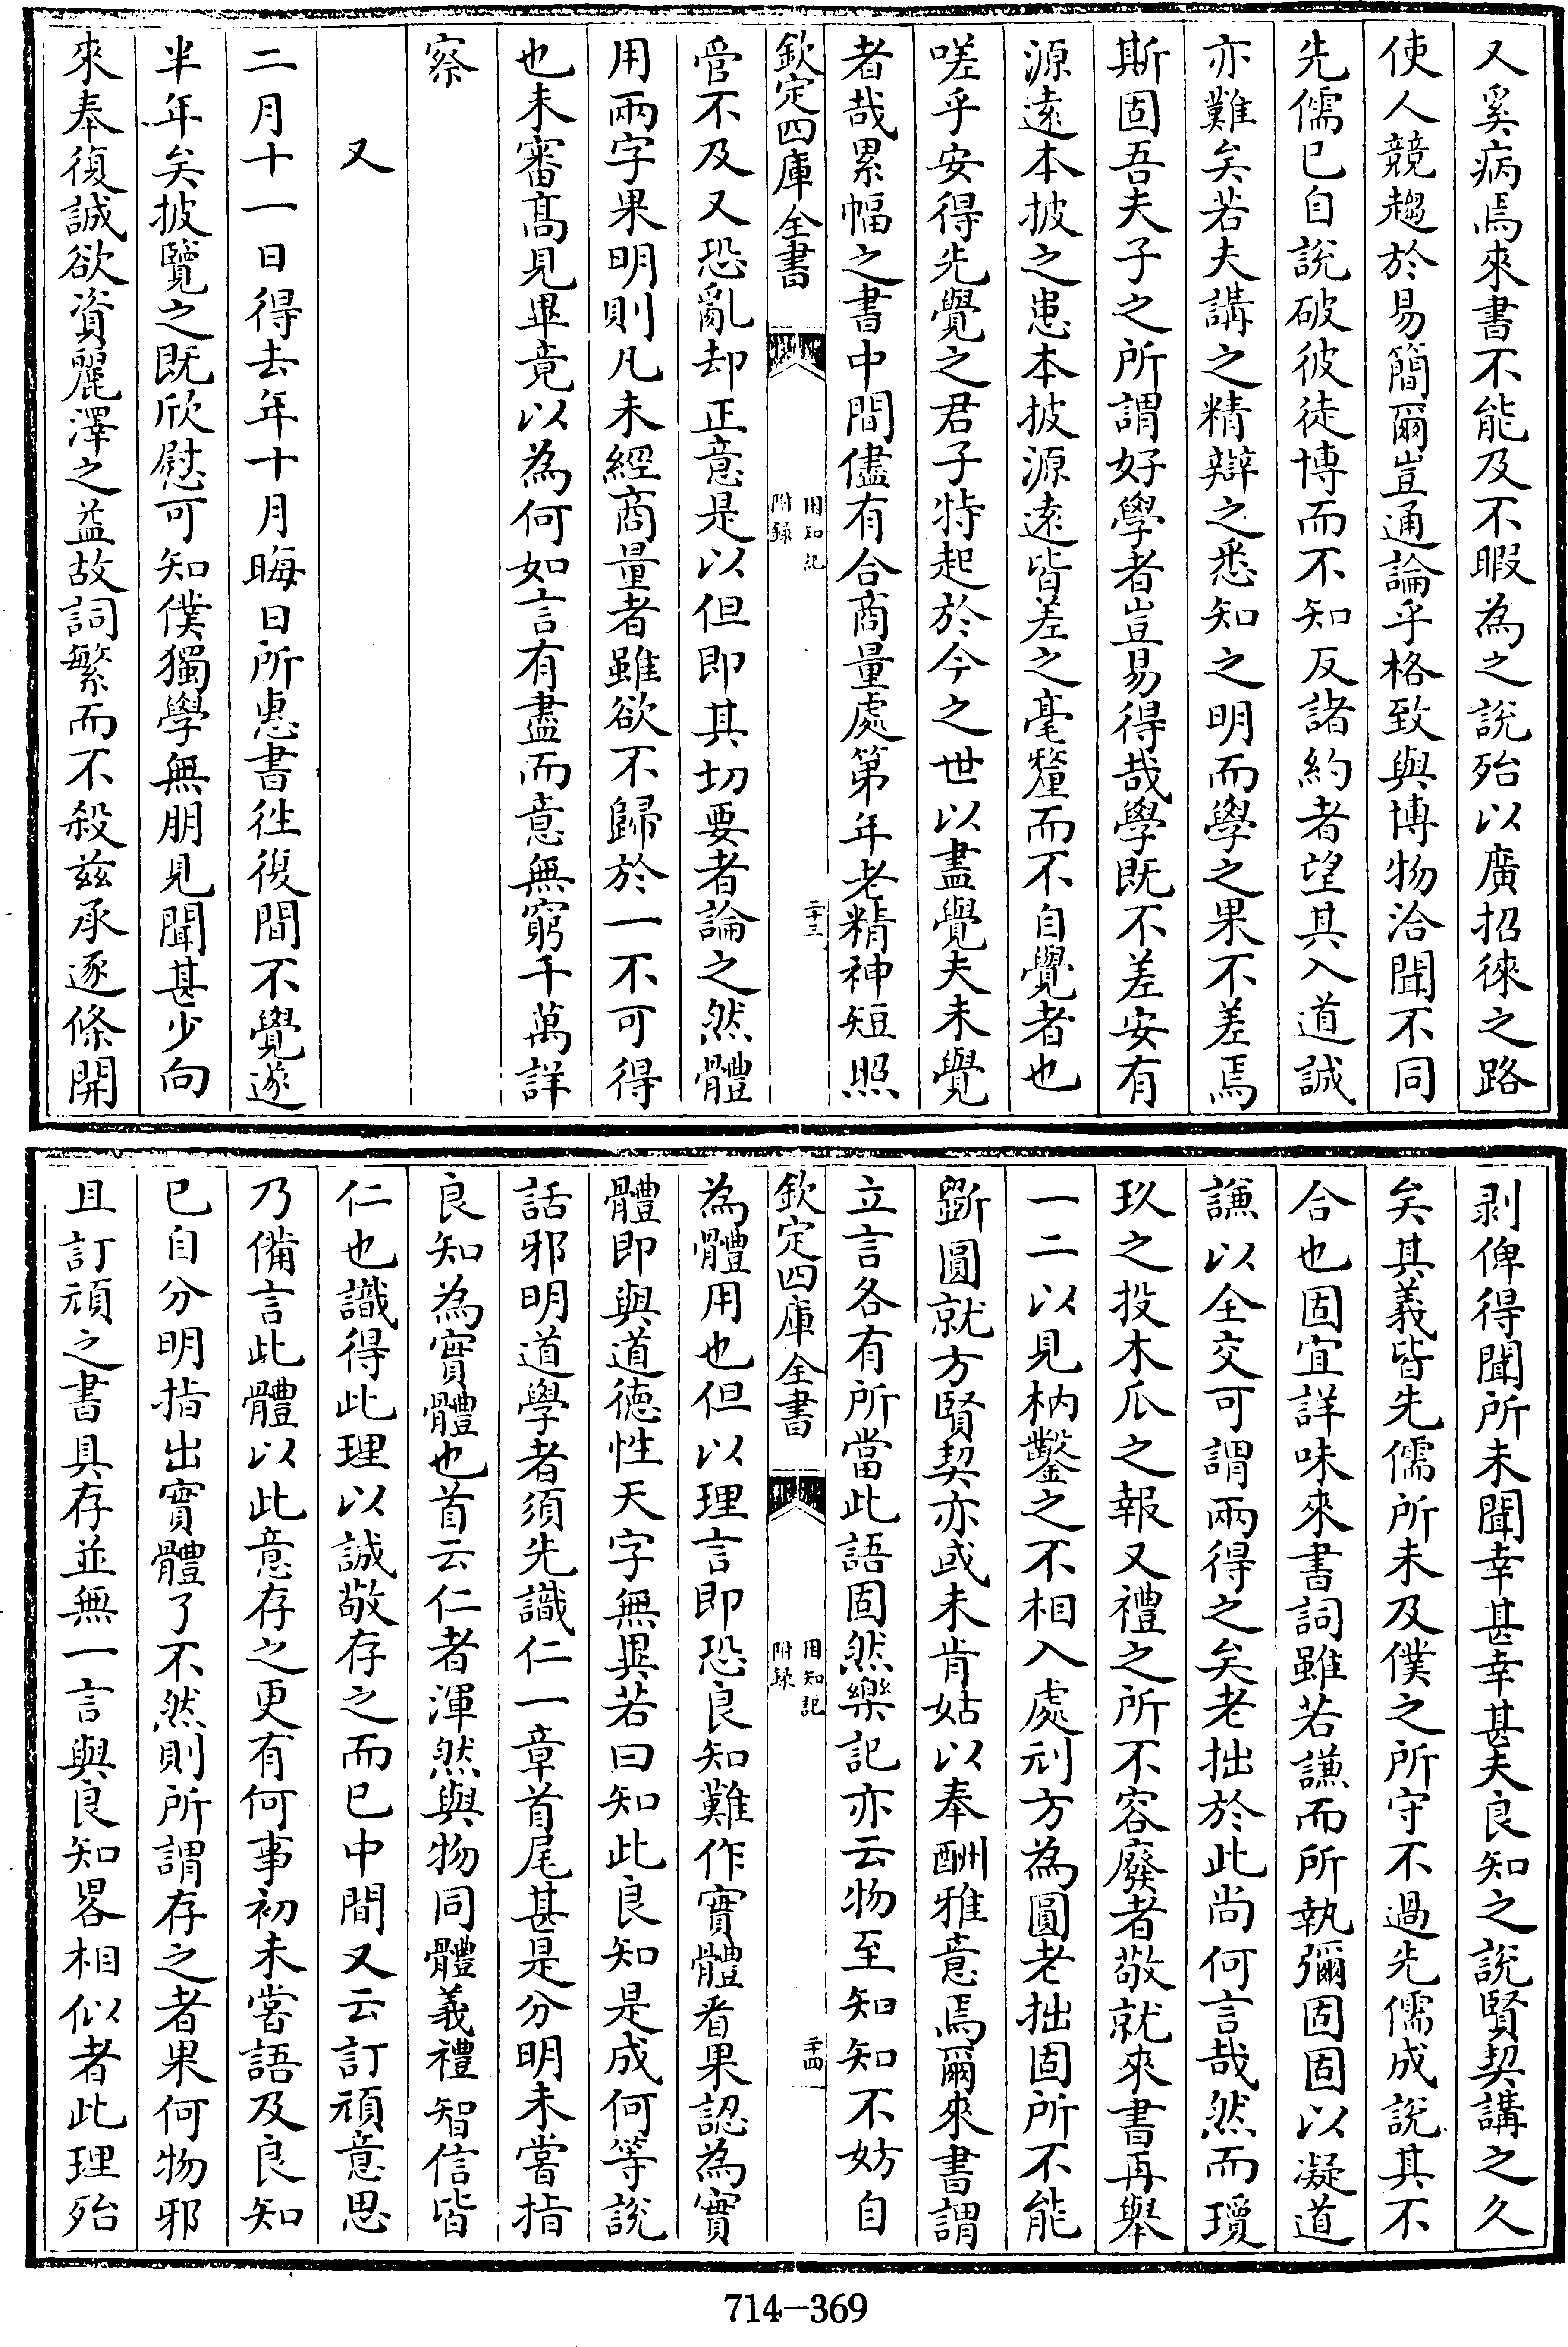 又奚病焉來書不能及不暇為之說殆以廣招徠之路
使人競趨於易簡爾豈通論乎格致與博物洽聞不同
先儒已自說破彼徒博而不知反諸約者望其入道誠
亦難矣若夫講之精辯之悉知之明而學之果不差焉
斯固吾夫子之所謂好學者豈易得哉學既不差安有
源遠本披之患本披源遠皆差之毫釐而不自覺者也
嗟乎安得先覺之君子特起於今之世以盡覺夫未覺
者哉累幅之書中間儘有合商量處第年老精神短照
欽定四庫全書
困知記
附錄
二十三
管不及又恐亂却正意是以但即其切要者論之然體
用兩字果明則凡未經商量者雖欲不歸於一不可得
也未審髙見畢竟以為何如言有盡而意無窮千萬詳
察
又
二月十一日得去年十月晦日所惠書徃復間不覺遂
半年矣披覽之既欣慰可知僕獨學無朋見聞甚少向
來奉復誠欲資麗澤之益故詞繁而不殺兹承逐條開
剥俾得聞所未聞幸甚幸甚夫良知之說賢契講之久
矣其義皆先儒所未及僕之所守不過先儒成說其不
合也固宜詳味來書詞雖若謙而所執彌固固以凝道
謙以全交可謂兩得之矣老拙於此尚何言哉然而瓊
玖之投木瓜之報又禮之所不容廢者敬就來書再舉
一二以見枘鑿之不相入處刓方為圓老拙固所不能
斵圓就方賢契亦或未肯姑以奉酬雅意焉爾來書謂
立言各有所當此語固然樂記亦云物至知知不妨自
欽定四庫全書
困知記
附錄
二十四
為體用也但以理言即恐良知難作實體看果認為實
體即與道德性天字無異若曰知此良知是成何等說
話邪明道學者須先識仁一章首尾甚是分明未嘗指
良知為實體也首云仁者渾然與物同體義禮智信皆
仁也識得此理以誠敬存之而已中間又云訂頑意思
乃備言此體以此意存之更有何事初未嘗語及良知
已自分明指出實體了不然則所謂存之者果何物邪
且訂頑之書具存並無一言與良知畧相似者此理殆
714-369